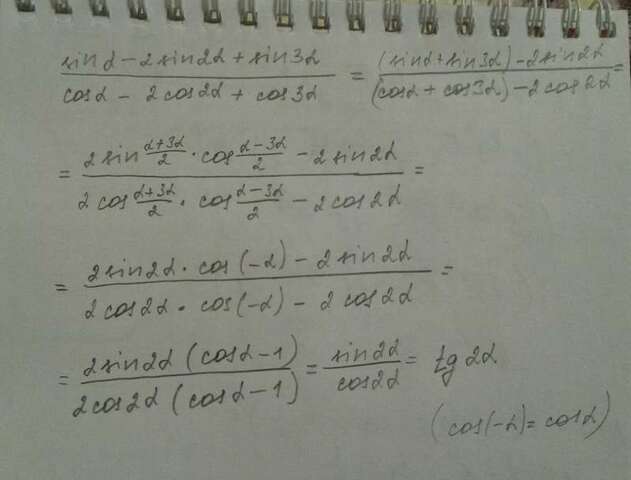 (sinα − 2sin2α + sin3α)/(cosα − 2cos2α + cos3α) = ((sinα + sin3α) − 2sin2α)/((cosα + cos3α) − 2cos2α) =
= (2sin (α+3α)/2 · cos (α−3α)/2 − 2sin2α)/(2cos (α+3α)/2 · cos (α−3α)/2 − 2cos2α) =
= (2sin2α · cos(−α) − 2sin2α)/(2cos2α · cos(−α) − 2cos2α) =
= (2sin2α (cosα − 1))/(2cos2α (cosα − 1)) = sin2α/cos2α = tg2α
(cos(−α) = cosα)